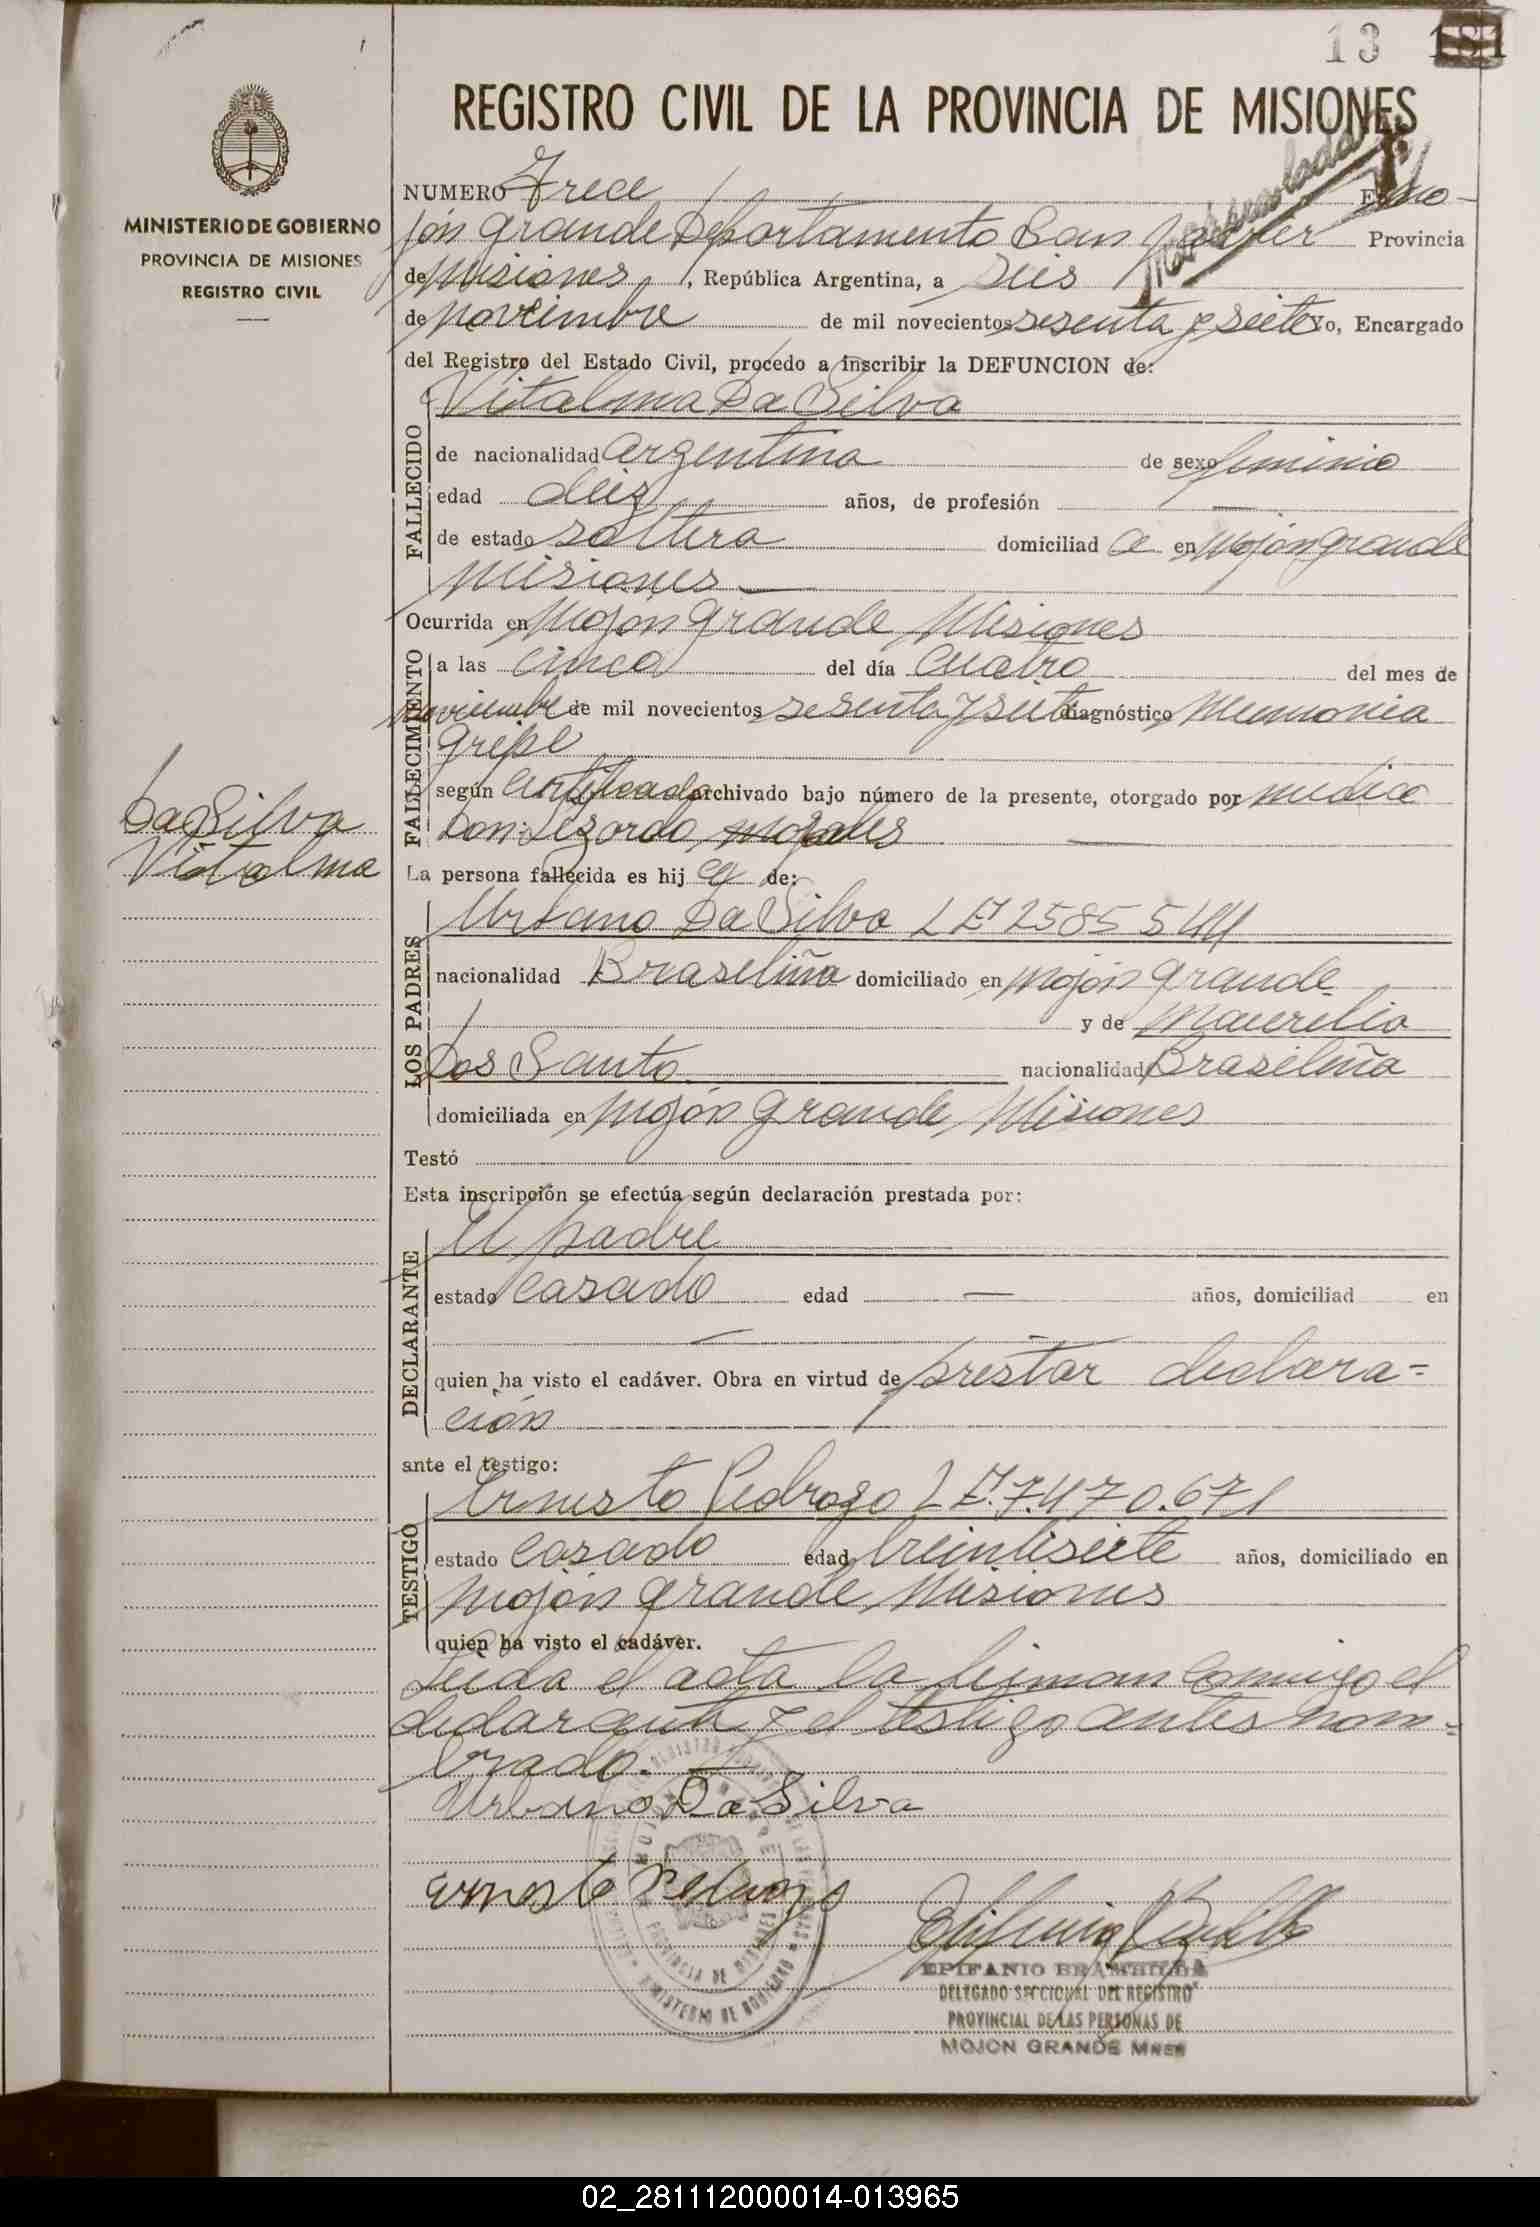 13 181
REGISTRO CIVIL DE LA PROVINCIA DE MISIONES
MINISTERIO DE GOBIERNO
PROVINCIA DE MISIONES
REGISTRO CIVIL
NUMERO Trece En Mo-
jón Grande Departamento San Javier Provincia
de Misiones, República Argentina, a Seis
de Noveimbre de mil novecientos sesenta y siete Yo, Encargado
del Registro del Estado Civil, procedo a inscribir la DEFUNCION de:
Vitalma Da Silva
FALLECIDO
de nacionalidad argentina de sexo feminio
edad diez años, de profesión —
de estado soltera domiciliad a en Mojón Grande
Misiones —
Ocurrida en Mojón Grande Misiones
FALLECIMIENTO
a las cinco del día cuatro del mes de
noviembre de mil novecientos sesenta y siete diagnóstico Neumonia
Gripe
según certificado archivado bajo número de la presente, otorgado por medico
Don: Morales —
Da Silva
Vitalma
La persona fallecida es hij a de:
LOS PADRES
Urbano Da Silva L E 2585544
nacionalidad Brasiliña domiciliado en Mojón Grande
y de Maurelia
Dos Santo nacionalidad Brasiliña
domiciliada en Mojón Grande, Misiones
Testó
Esta inscripción se efectúa según declaración prestada por:
DECLARANTE
El padre
estado casado edad — años, domiciliad en
—
quien ha visto el cadáver. Obra en virtud de prestar declara=
ción
ante el testigo:
TESTIGO
Ernesto Pedrozo L E. 7.470.671
estado casado edad treintisiete años, domiciliado en
Mojón Grande, Misiones
quien ha visto el cadáver.
Leida el acta la firman comigo el
declarante y el testigo antes nom=
brado. —
Urbano Da Silva
Ernesto Pedrozo
EPIFANIO BRAMBILLA
DELEGADO SECCIONAL DEL REGISTRO
PROVINCIAL DE LAS PERSONAS DE
MOJON GRANDE Mnes
PROVINCIA DE MISIONES
MINISTERIO DE GOBIERNO
02_281112000014-013965